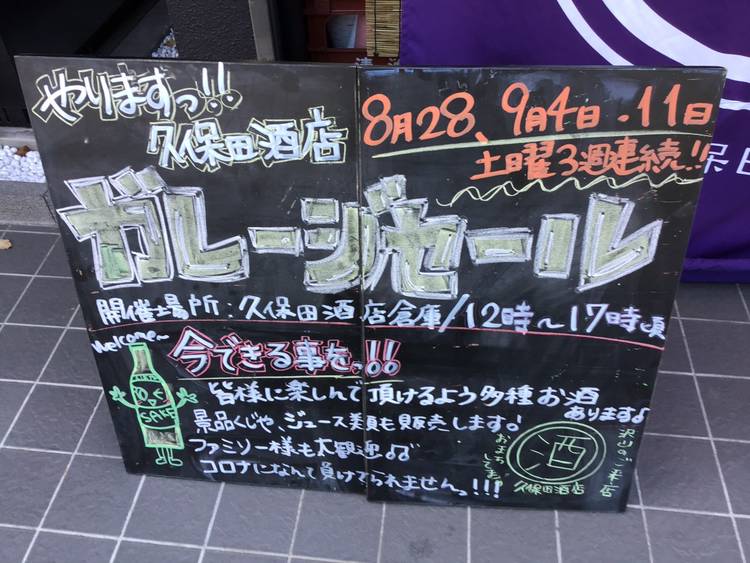 やりますっ!!
久保田酒店
8月28、9月4日・11日
土日曜3週連続!!
ガレージセール
開催場所:久保田酒店倉庫/12時〜17時頃
Welcome~
今できる事をっ!!
皆様に楽しんで頂けるよう多種お酒
あります♪
景品くじや、ジュース類も販売します!
ファミリー様も大歓迎♬
コロナになんて負けてられませんっ!!!
SAKE
酒
久保田酒店
沢山のご来店
おまちしてます